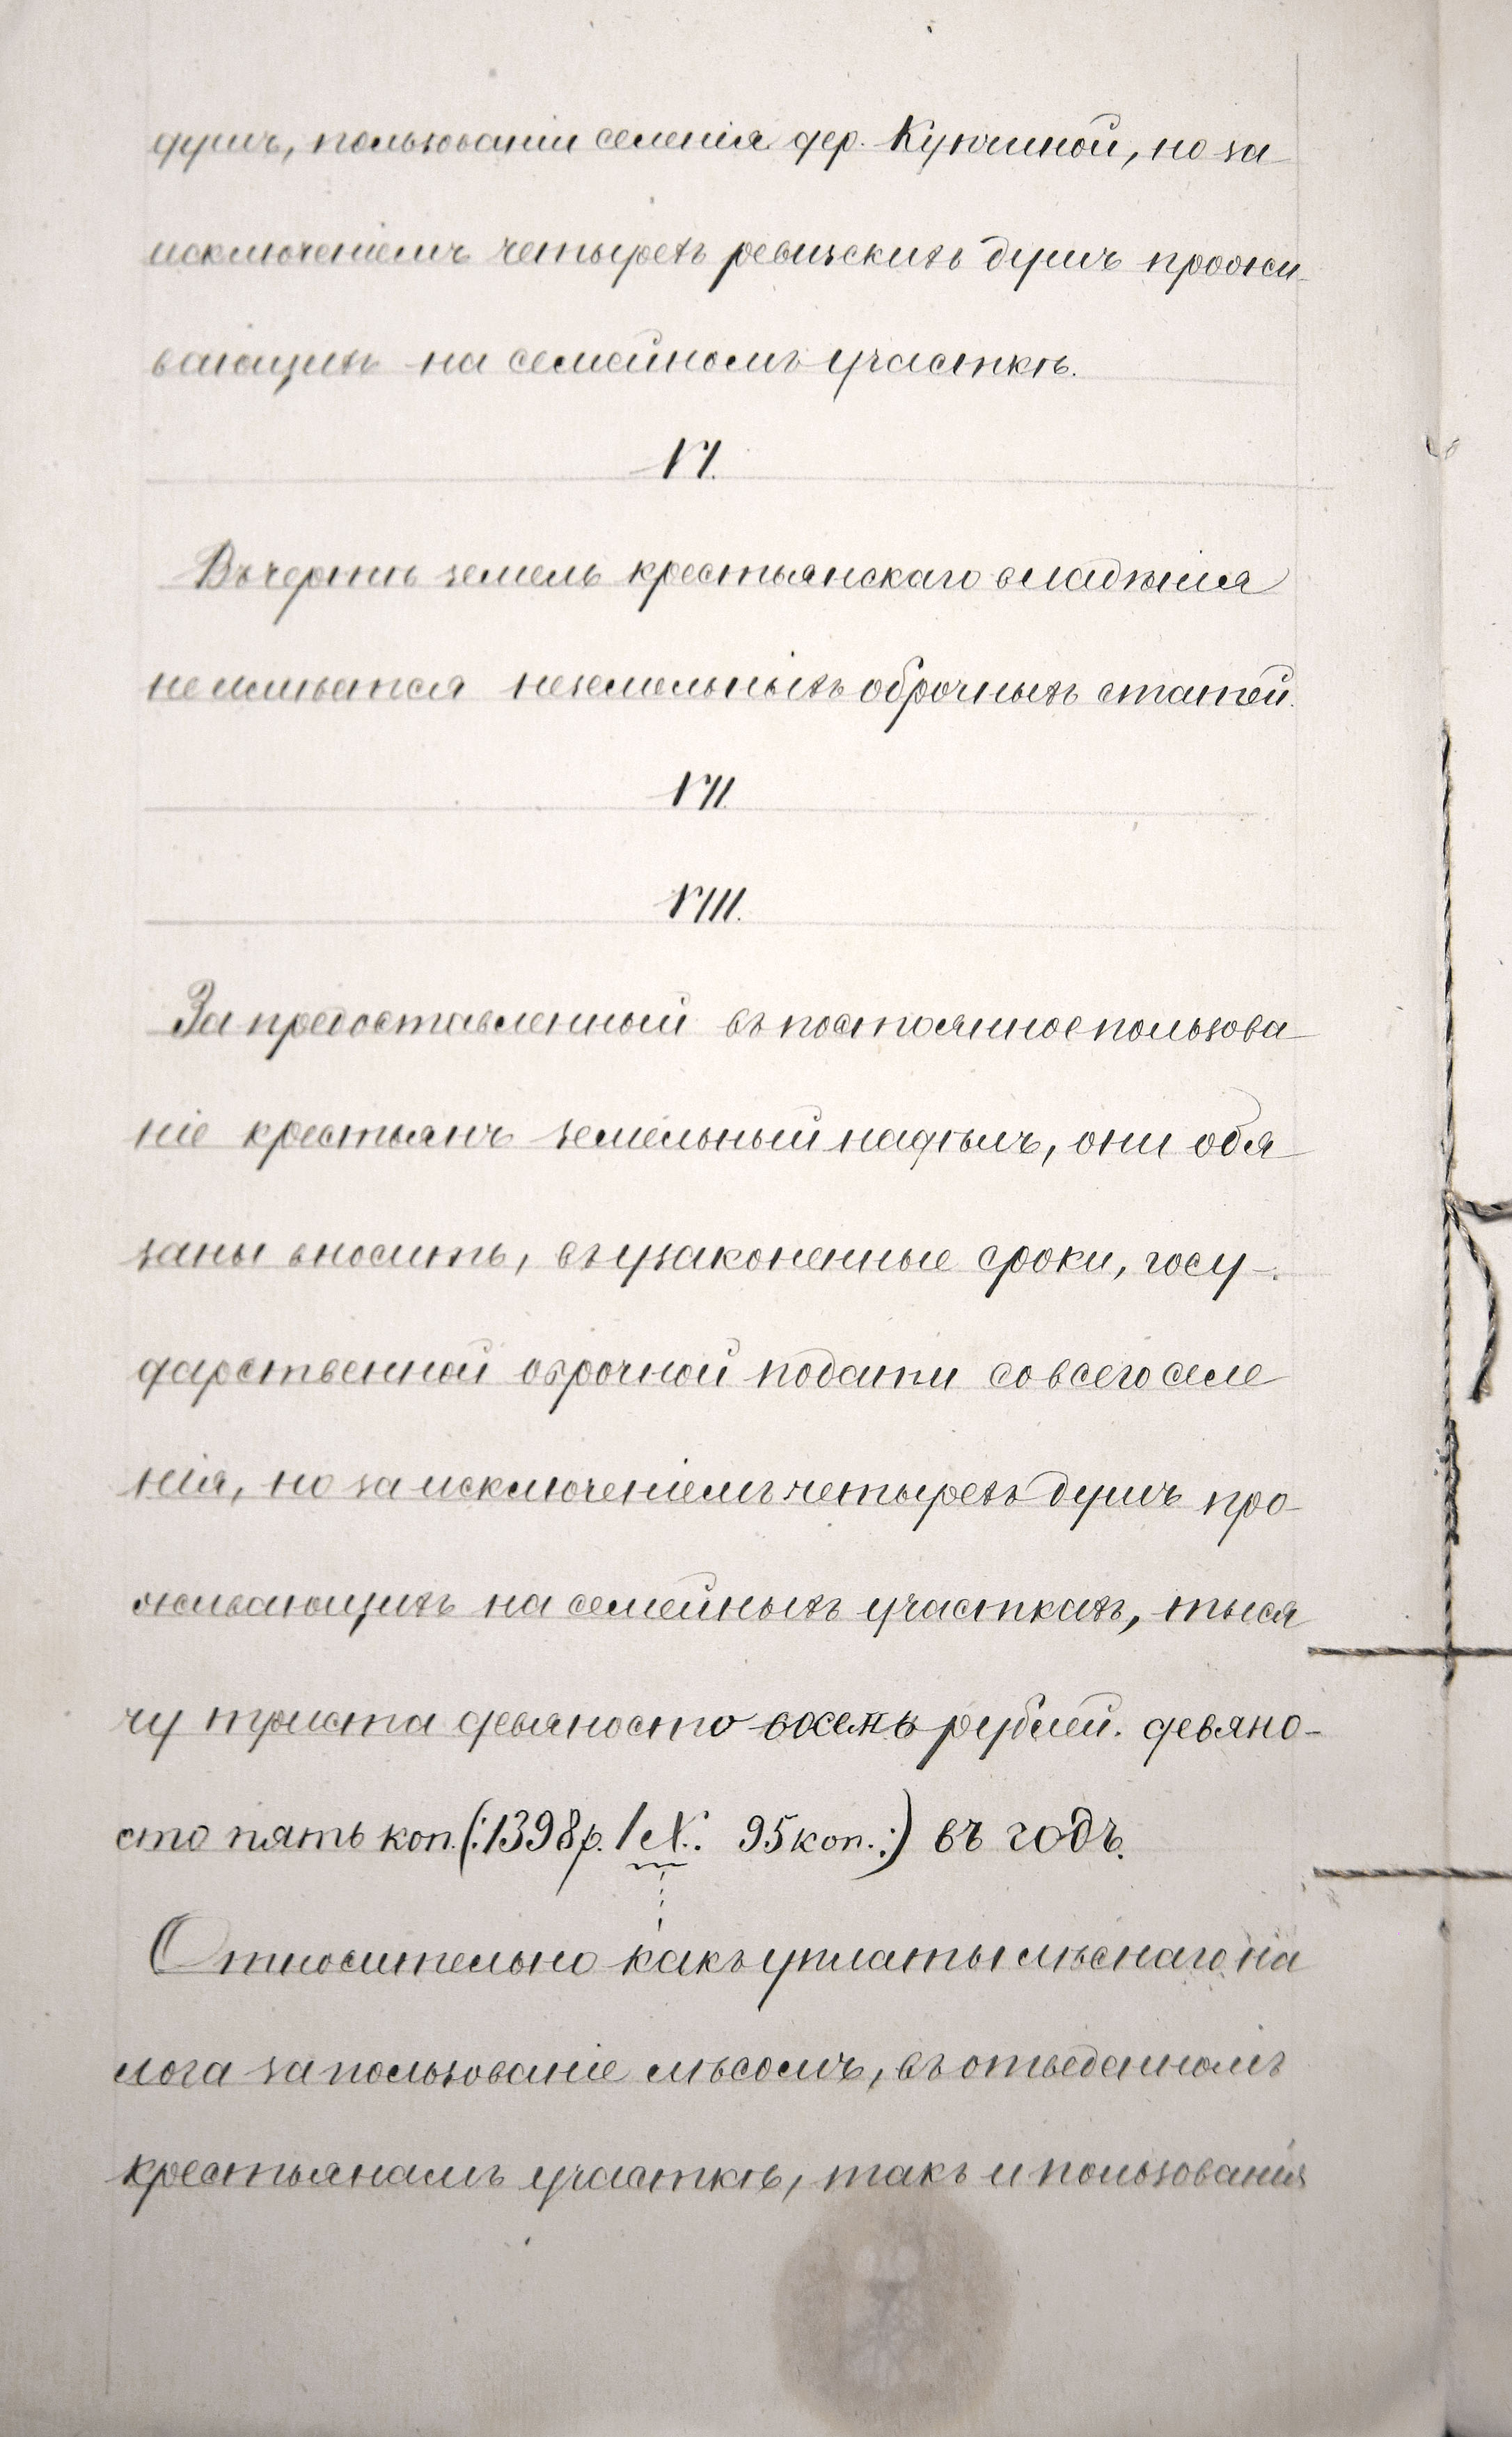 душъ, пользованіи селенія дер. Купчиной, но за
исключеніемъ четырехъ ревизскихъ душъ прожи-
вающихъ на семейномъ участкѣ.
VI.
Въ чертѣ земель крестьянскаго владѣнія
не имѣется неземельныхъ оброчныхъ статей.
VII.
VIII.
За предоставленный въ постоянное пользова
ніе крестьянъ земельный надѣлъ, они обя
заны вносить, въ узаконенные сроки, госу-
дарственной оброчной подати со всего селе
нія, но за исключеніемъ четырехъ душъ про-
живающихъ на семейныхъ участкахъ, тыся
чу триста девяносто восемь рублей. девяно-
сто пять коп. (: 1398 р. 95 коп. :) въ годъ.
Относительно какъ уплаты лѣснаго на
лога за пользованіе лѣсомъ, въ отведенномъ
крестьянамъ участкѣ, такъ и пользованія